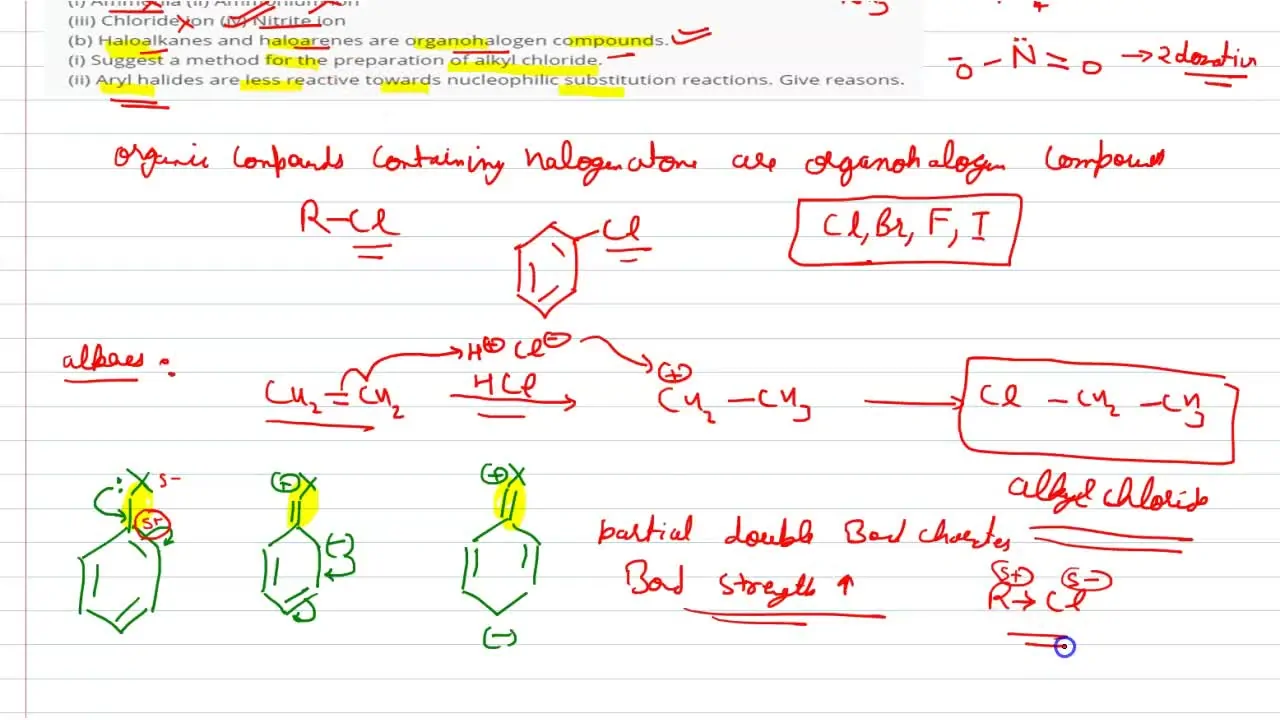 (i) Ammonia (ii) Ammonium ion
(iii) Chloride ion (iv) Nitrite ion
(b) Haloalkanes and haloarenes are organohalogen compounds.
(i) Suggest a method for the preparation of alkyl chloride.
(ii) Aryl halides are less reactive towards nucleophilic substitution reactions. Give reasons.
⁻O – N̈ = O → 2 donation
organic compounds containing halogen atoms are organohalogen compounds
R–Cl
Cl
Cl, Br, F, I
alkenes :
H⊕ Cl⊖
CH2 = CH2
HCl
⊕
CH2 – CH3
Cl – CH2 – CH3
alkyl chloride
: X δ−
δ+
⊕ X
(−)
⊕ X
(−)
partial double Bond character
Bond strength ↑
δ+ δ−
R → Cl